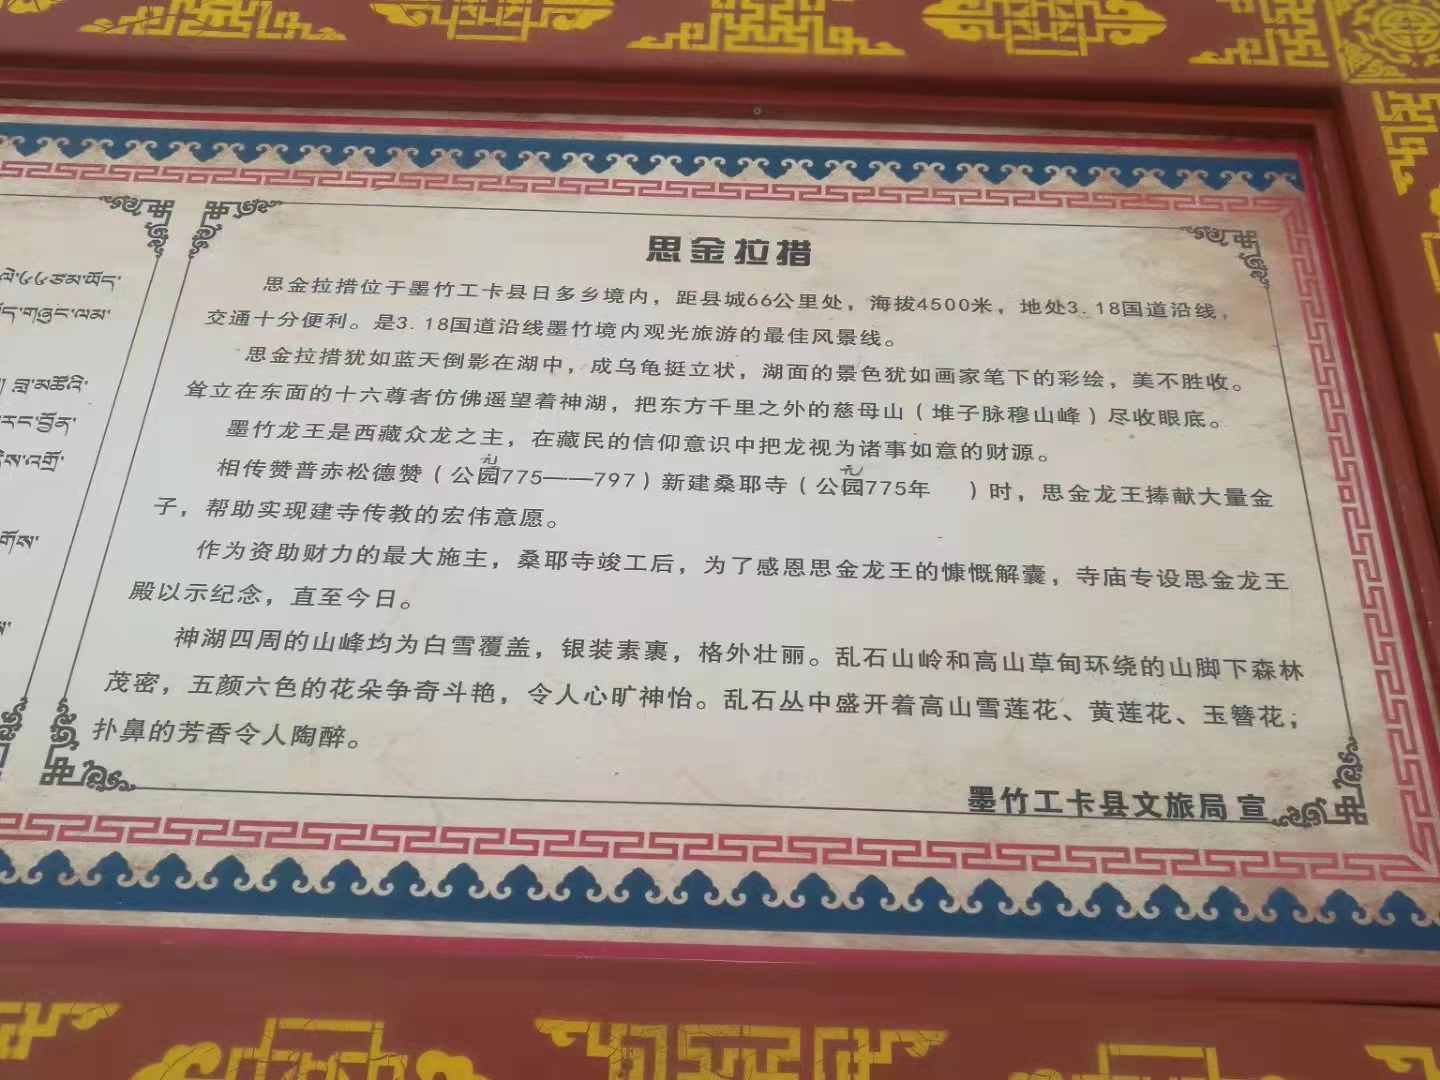 思金拉措
思金拉措位于墨竹工卡县日多乡境内，距县城66公里处，海拔4500米，地处3.18国道沿线，
交通十分便利。是3.18国道沿线墨竹境内观光旅游的最佳风景线。
思金拉措犹如蓝天倒影在湖中，成乌龟挺立状，湖面的景色犹如画家笔下的彩绘，美不胜收。
耸立在东面的十六尊者仿佛遥望着神湖，把东方千里之外的慈母山（堆子脉穆山峰）尽收眼底。
墨竹龙王是西藏众龙之主，在藏民的信仰意识中把龙视为诸事如意的财源。
元 元
相传赞普赤松德赞（公园775——797）新建桑耶寺（公园775年 ）时，思金龙王捧献大量金
子，帮助实现建寺传教的宏伟意愿。
作为资助财力的最大施主，桑耶寺竣工后，为了感恩思金龙王的慷慨解囊，寺庙专设思金龙王
殿以示纪念，直至今日。
神湖四周的山峰均为白雪覆盖，银装素裹，格外壮丽。乱石山岭和高山草甸环绕的山脚下森林
茂密，五颜六色的花朵争奇斗艳，令人心旷神怡。乱石丛中盛开着高山雪莲花、黄莲花、玉簪花；
扑鼻的芳香令人陶醉。
墨竹工卡县文旅局 宣